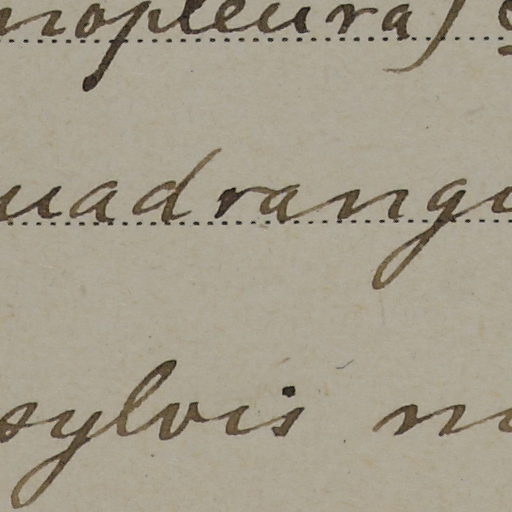 nopleura)
uadrangu
sylvis m